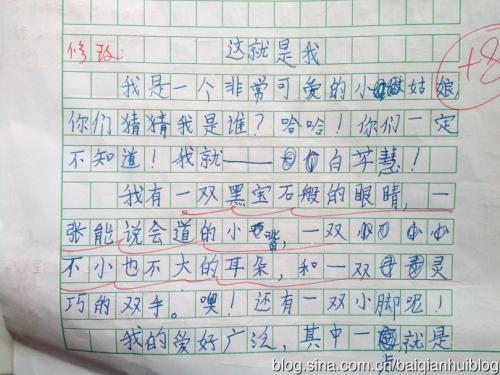 修改: 这就是我
+8
我是一个非常可爱的小姑娘,
你们猜猜我是谁?哈哈!你们一定
不知道!我就——白芊慧!
我有一双黑宝石般的眼睛,一
张能说会道的小嘴,一双小
不小也不大的耳朵,和一双灵
巧的双手。噢!还有一双小脚呢!
我的爱好广泛,其中一点就是
blog.sina.com.cn/baiqianhuiblog